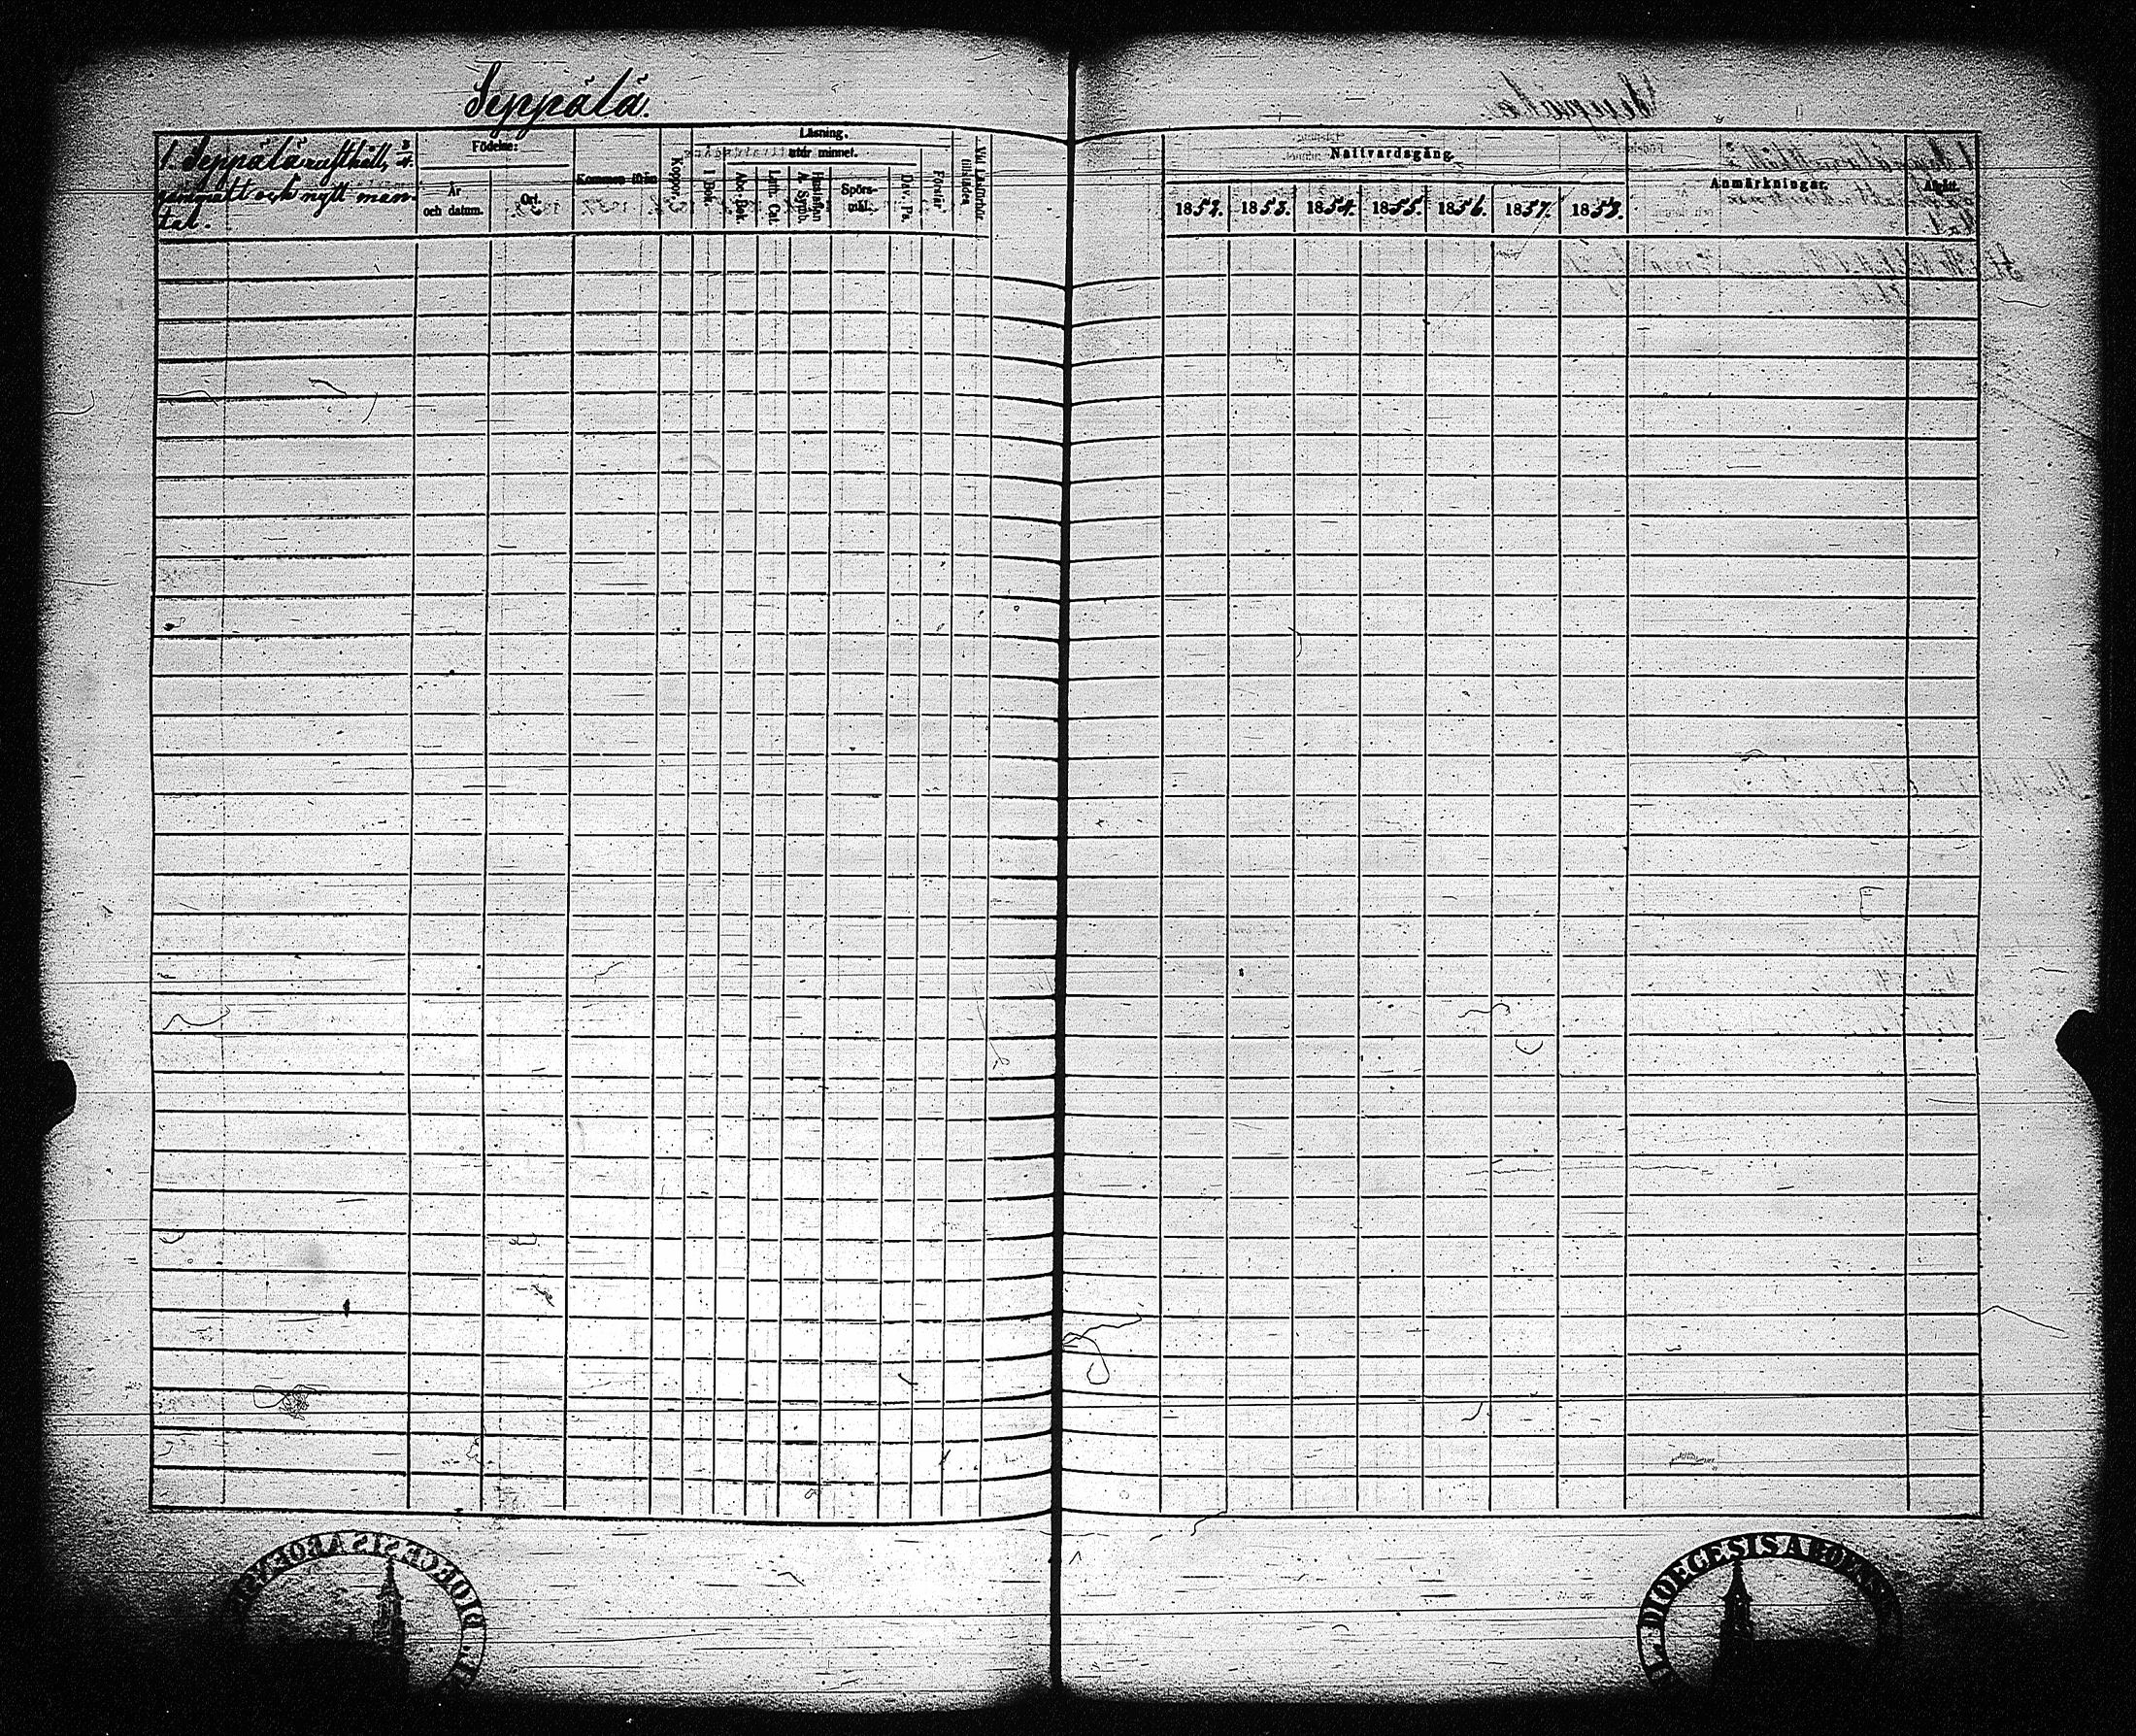 Seppälä.
1. Seppälä rusthåll, 3/4
gammalt och nytt man-
tal.
Födelse:
År
och datum.
Ort.
Kommen ifrån
Koppor.
Läsning.
utur minnet.
I Bok.
Abc-Bok.
Luth. Cat.
Hustaflan
A. Symb.
Spörs-
mål.
Dav. Ps.
Förstår.
Vid Läsförhör
tillstädes
Nattvardsgång.
1852. 1853. 1854. 1855. 1856. 1857. 1858.
Anmärkningar.
Afgått.
DIOECESIS ABOENS